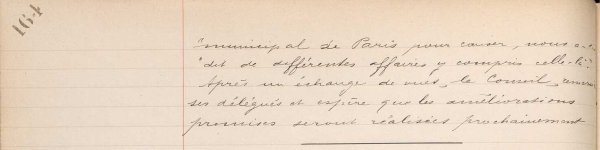 164
"municipal de Paris pour causer, nous a-t-on
"dit de différentes affaires y compris celle-là".
Après un échange de vues, le Conseil, remercie
ses délégués et espère que les améliorations
promises seront réalisées prochainement